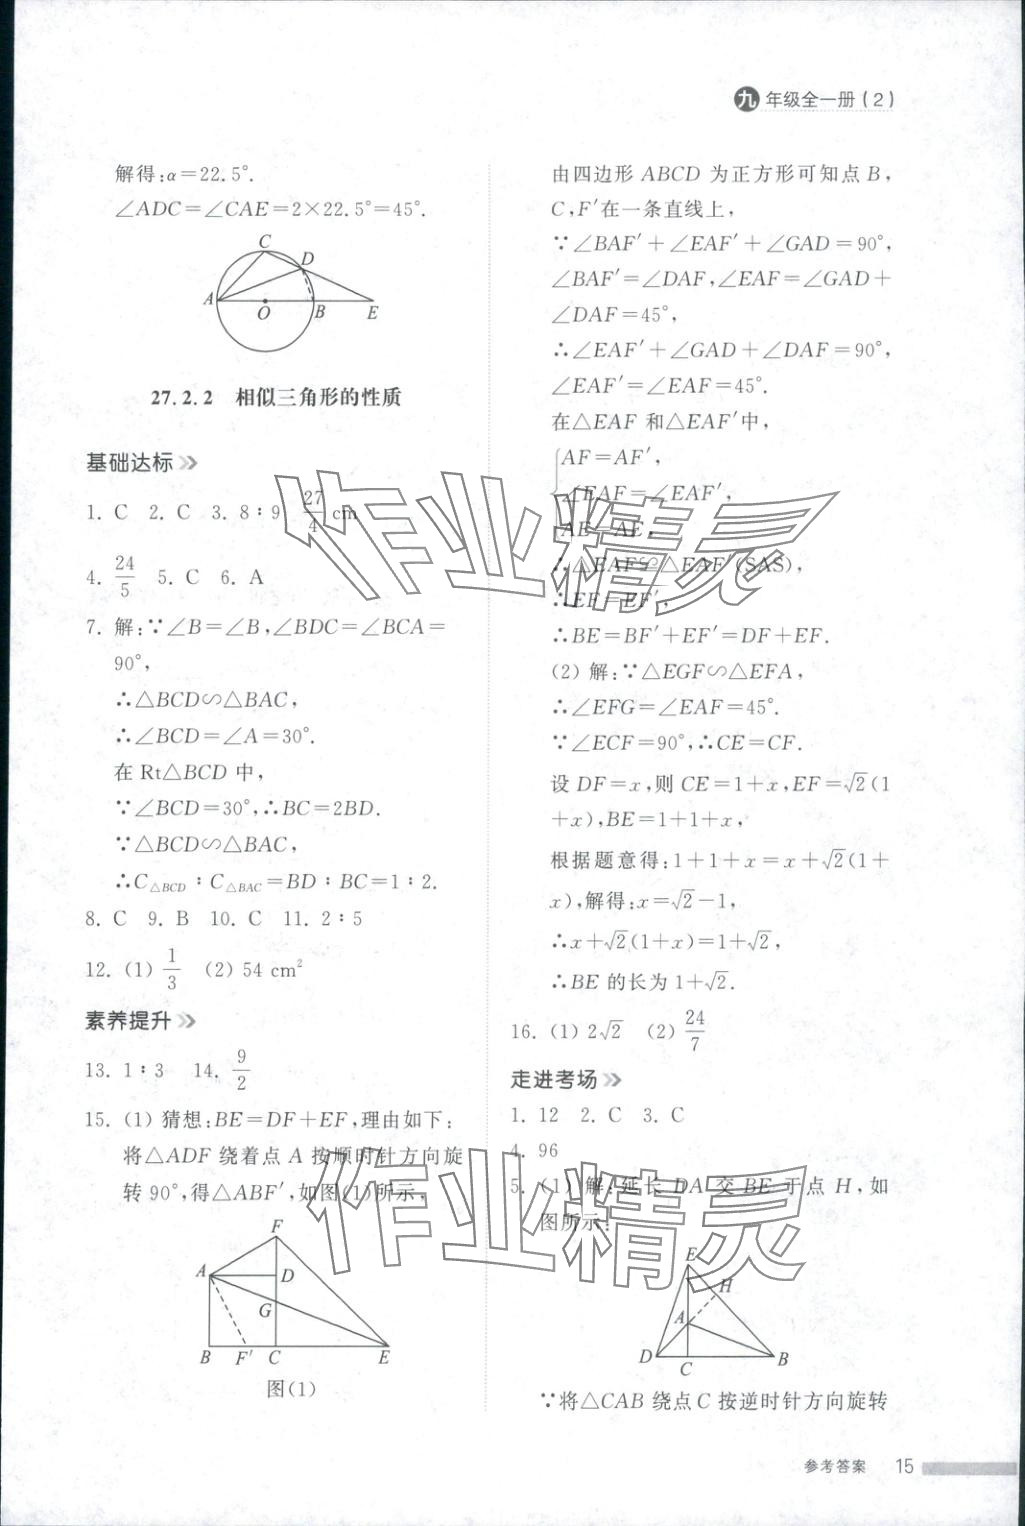 九年级全一册(2)
解得:α=22.5°.
∠ADC=∠CAE=2×22.5°=45°.
C
D
A
O
B
E
27.2.2 相似三角形的性质
基础达标
1. C 2. C 3. 8∶9 27/4 cm
4. 24/5 5. C 6. A
7. 解:∵∠B=∠B,∠BDC=∠BCA=
90°,
∴△BCD∽△BAC,
∴∠BCD=∠A=30°.
在 Rt△BCD 中,
∵∠BCD=30°,∴BC=2BD.
∵△BCD∽△BAC,
∴C△BCD∶C△BAC=BD∶BC=1∶2.
8. C 9. B 10. C 11. 2∶5
12. (1) 1/3 (2) 54 cm²
素养提升
13. 1∶3 14. 9/2
15. (1) 猜想:BE=DF+EF,理由如下:
将△ADF 绕着点 A 按顺时针方向旋
转 90°,得△ABF′,如图(1)所示,
F
A
D
G
B
F′
C
E
图(1)
由四边形 ABCD 为正方形可知点 B,
C,F′在一条直线上,
∵∠BAF′+∠EAF′+∠GAD=90°,
∠BAF′=∠DAF,∠EAF=∠GAD+
∠DAF=45°,
∴∠EAF′+∠GAD+∠DAF=90°,
∠EAF′=∠EAF=45°.
在△EAF 和△EAF′中,
AF=AF′,
∠EAF=∠EAF′,
AE=AE,
∴△EAF≌△EAF′(SAS),
∴EF=EF′,
∴BE=BF′+EF′=DF+EF.
(2) 解:∵△EGF∽△EFA,
∴∠EFG=∠EAF=45°.
∵∠ECF=90°,∴CE=CF.
设 DF=x,则 CE=1+x,EF=√2(1
+x),BE=1+1+x,
根据题意得:1+1+x=x+√2(1+
x),解得:x=√2−1,
∴x+√2(1+x)=1+√2,
∴BE 的长为 1+√2.
16. (1) 2√2 (2) 24/7
走进考场
1. 12 2. C 3. C
4. 96
5. (1) 解:延长 DA 交 BE 于点 H,如
图所示:
E
H
A
D
C
B
∵将△CAB 绕点 C 按逆时针方向旋转
参考答案 15
作业精灵
作业精灵